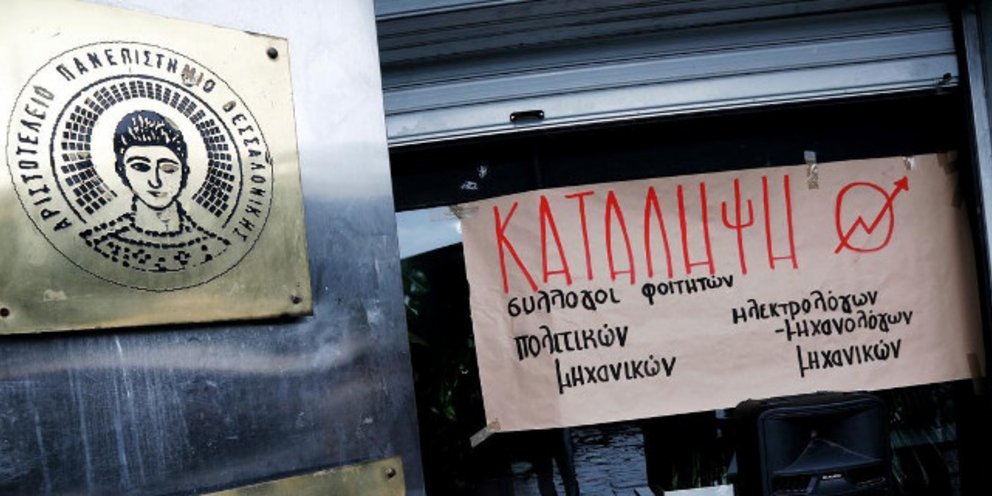 ΑΡΙΣΤΟΤΕΛΕΙΟ ΠΑΝΕΠΙΣΤΗΜΙΟ ΘΕΣΣΑΛΟΝΙΚΗΣ
ΚΑΤΑΛΗΨΗ
σύλλογοι φοιτητών
πολιτικών
μηχανικών
ηλεκτρολόγων
-μηχανολόγων
μηχανικών